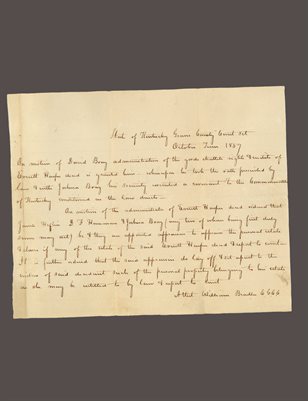 State of Kentucky Graves County Court Set
October Term 1857
On motion of David Boaz administration of the goods chattels rights & credits of
Everett Harper decd is granted him whereupon he took the oath prescribed by
law & with Joshua Boaz his security executed a covenant to the Commonwealth
of Kentucky conditioned as the law directs
On motion of the administrator of Everett Harper decd ordered that
James & Joshua Boaz (any two of whom being first duly
sworn may act) be & they are appointed appraisers to appraise the personal estate
& slaves if any of the estate of the said Everett Harper decd & report to court
It is further ordered that the said appraisers do lay off & set apart to the
widow of said decedent such of the personal property belonging to his estate
as she may be entitled to by law & report to court
Attest William